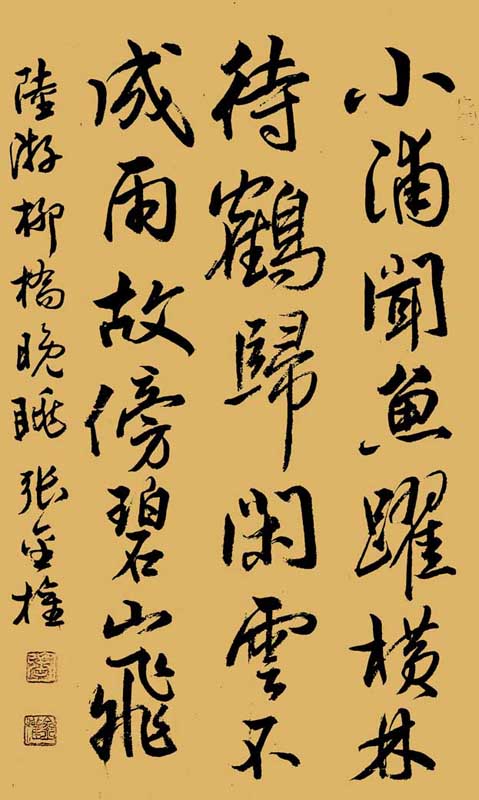 小浦聞魚躍橫林
待鶴歸閑雲不
成雨故傍碧山飛
陸游柳橋晚眺 張金權